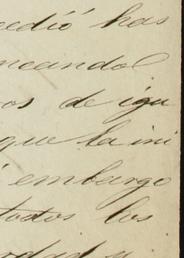 cedió has
ncandol
os de igu
que la ini
embargo
todos los